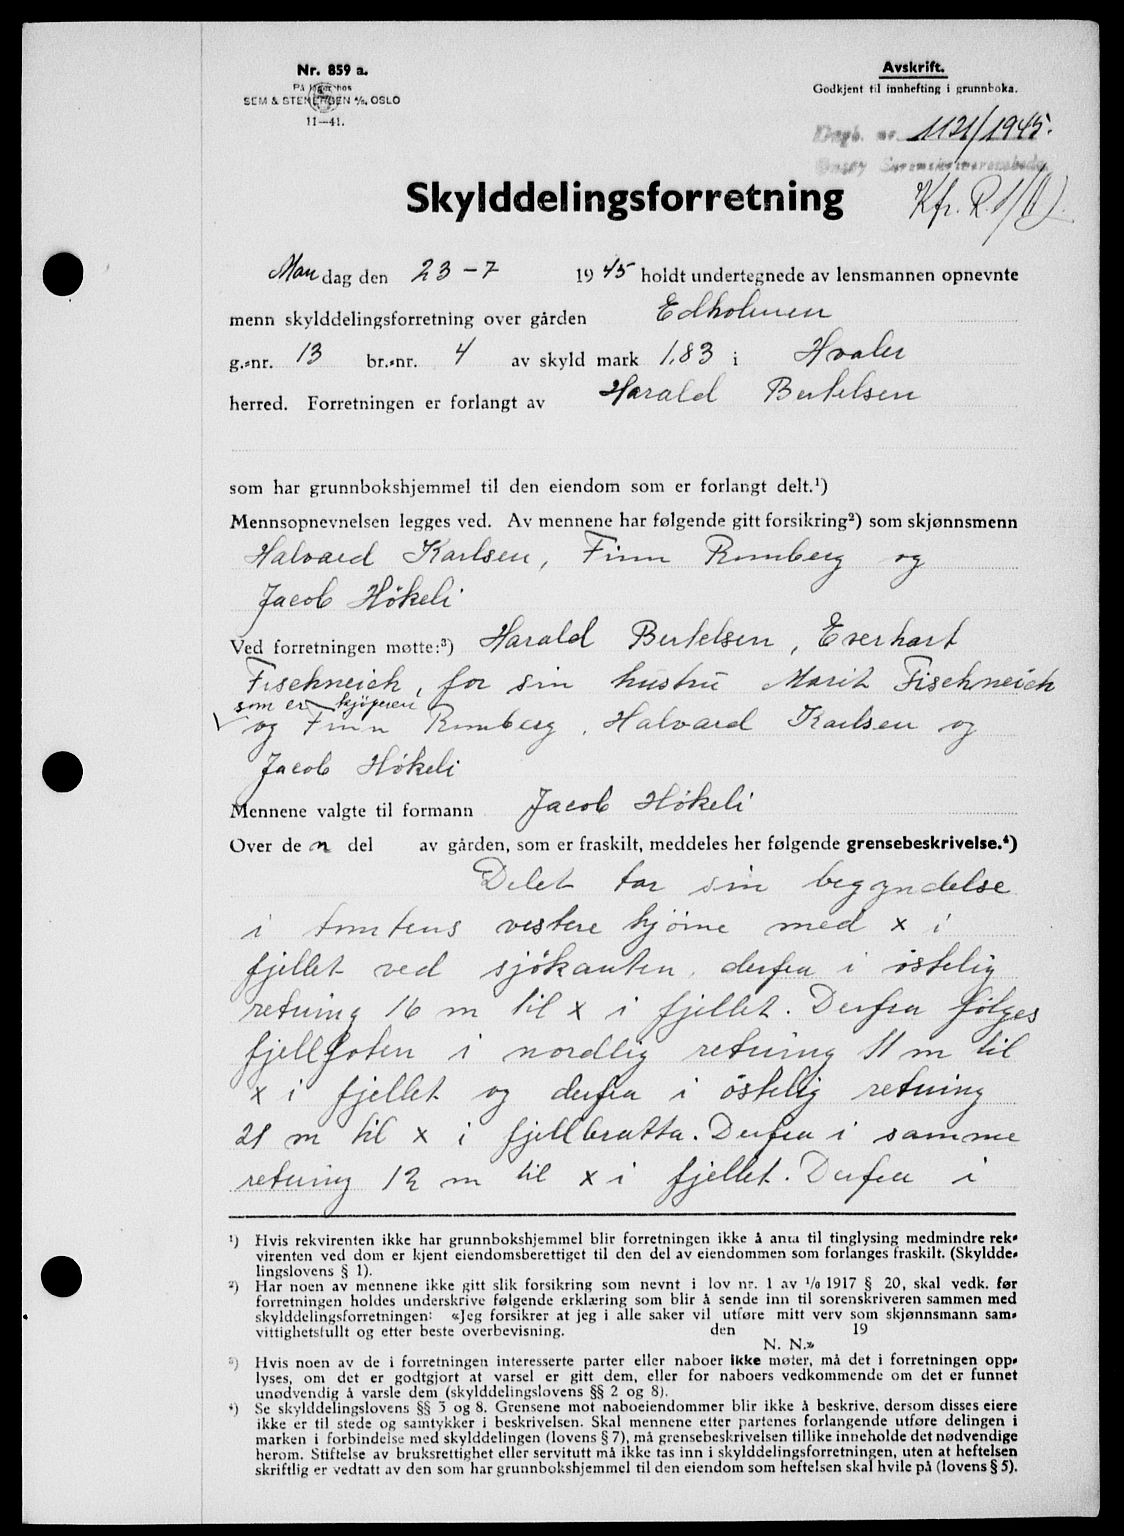 Nr. 859 a.
På lager hos
SEM & STENERSEN A/S, OSLO
11—41.
Avskrift.
Godkjent til innhefting i grunnboka.
Dagb. nr. 1121/1945.
Onsøy Sorenskriverembede
Kfr. R.
Skylddelingsforretning
Mandag den 23-7 1945 holdt undertegnede av lensmannen opnevnte
menn skylddelingsforretning over gården Edholmen
g.-nr. 13 br.-nr. 4 av skyld mark 1,83 i Hvaler
herred. Forretningen er forlangt av Harald Bertelsen
som har grunnbokshjemmel til den eiendom som er forlangt delt.¹)
Mennsopnevnelsen legges ved. Av mennene har følgende gitt forsikring²) som skjønnsmenn
Halvard Karlsen, Finn Romberg og
Jacob Hökeli
Ved forretningen møtte:³) Harald Bertelsen, Everhart
Fischneich, for sin hustru Marit Fischneich
som er kjöperen
og Finn Romberg, Halvard Karlsen og
Jacob Hökeli
Mennene valgte til formann Jacob Hökeli
Over den del av gården, som er fraskilt, meddeles her følgende grensebeskrivelse.⁴)
Delet tar sin begyndelse
i tomtens vestere hjörne med x i
fjellet ved sjökanten, derfra i östelig
retning 16 m til x i fjellet. Derfra fölges
fjellfoten i nordlig retning 11 m til
x i fjellet og derfra i östelig retning
21 m til x i fjellbratta. Derfra i samme
retning 12 m til x i fjellet. Derfra i
¹) Hvis rekvirenten ikke har grunnbokshjemmel blir forretningen ikke å anta til tinglysing medmindre rek-
virenten ved dom er kjent eiendomsberettiget til den del av eiendommen som forlanges fraskilt. (Skyldde-
lingslovens § 1).
²) Har noen av mennene ikke gitt slik forsikring som nevnt i lov nr. 1 av 1/6 1917 § 20, skal vedk. før
forretningen holdes underskrive følgende erklæring som blir å sende inn til sorenskriveren sammen med
skylddelingsforretningen: «Jeg forsikrer at jeg i alle saker vil utføre mitt verv som skjønnsmann sam-
vittighetsfullt og etter beste overbevisning. den 19
N. N.»
³) Hvis noen av de i forretningen interesserte parter eller naboer ikke møter, må det i forretningen opp-
lyses, om det er godtgjort at varsel er gitt dem, eller for naboers vedkommende om det er funnet
unødvendig å varsle dem (skylddelingslovens §§ 2 og 8).
⁴) Se skylddelingslovens §§ 3 og 8. Grensene mot naboeiendommer blir ikke å beskrive, dersom disses eiere
ikke er til stede og samtykker i beskrivelsen. Skal mennene etter partenes forlangende utføre delingen i
marken i forbindelse med skylddelingen (lovens § 7), må grensebeskrivelsen tillike inneholde det nødvendige
herom. Stiftelse av bruksrettighet eller servitutt må ikke tas inn i skylddelingsforretningen, uten at heftelsen
skriftlig er vedtatt av den som har grunnbokshjemmel til den eiendom som heftelsen skal hvile på (lovens § 5).